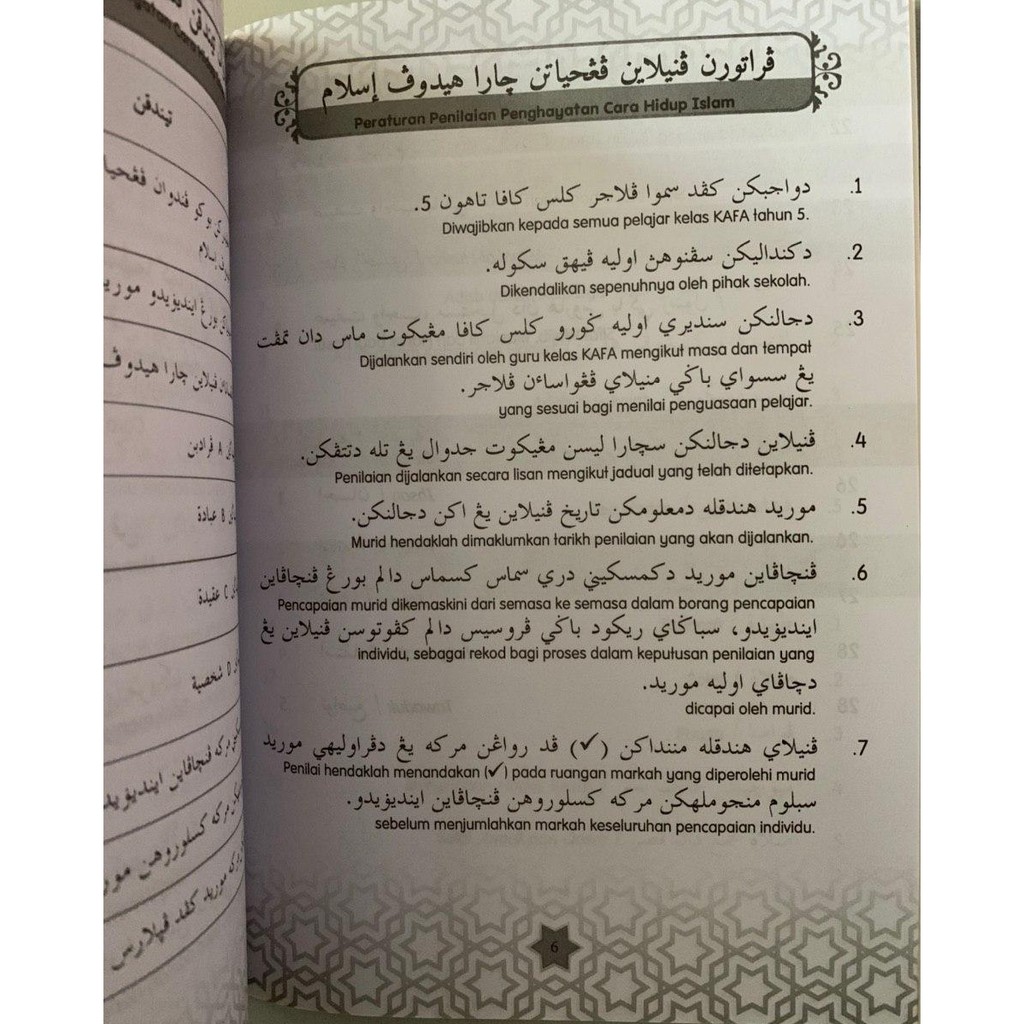 ڤراتورن ڤنيلاين ڤڠحياتن چارا هيدوڤ إسلام
Peraturan Penilaian Penghayatan Cara Hidup Islam
1. دواجبكن كڤد سموا ڤلاجر كلس كافا تاهون 5.
Diwajibkan kepada semua pelajar kelas KAFA tahun 5.
2. دكنداليكن سڤنوهڽ اوليه ڤيهق سكوله.
Dikendalikan sepenuhnya oleh pihak sekolah.
3. دجالنكن سنديري اوليه ݢورو كلس كافا مڠيكوت ماس دان تمڤت
Dijalankan sendiri oleh guru kelas KAFA mengikut masa dan tempat
يڠ سسواي باݢي منيلاي ڤڠواساءن ڤلاجر.
yang sesuai bagi menilai penguasaan pelajar.
4. ڤنيلاين دجالنكن سچارا ليسن مڠيكوت جدوال يڠ تله دتتڤكن.
Penilaian dijalankan secara lisan mengikut jadual yang telah ditetapkan.
5. موريد هندقله دمعلومكن تاريخ ڤنيلاين يڠ اكن دجالنكن.
Murid hendaklah dimaklumkan tarikh penilaian yang akan dijalankan.
6. ڤنچاڤاين موريد دكمسكيني دري سماس كسماس دالم بورڠ ڤنچاڤاين
Pencapaian murid dikemaskini dari semasa ke semasa dalam borang pencapaian
اينديۏيدو، سباݢاي ريكود باݢي ڤروسيس دالم كڤوتوسن ڤنيلاين يڠ
individu, sebagai rekod bagi proses dalam keputusan penilaian yang
دچاڤاي اوليه موريد.
dicapai oleh murid.
7. ڤنيلاي هندقله منندàكن (✓) ڤد رواڠن مركه يڠ دڤراوليهي موريد
Penilai hendaklah menandakan (✓) pada ruangan markah yang diperolehi murid
سبلوم منجوملهكن مركه كسلوروهن ڤنچاڤاين اينديۏيدو.
sebelum menjumlahkan markah keseluruhan pencapaian individu.
6